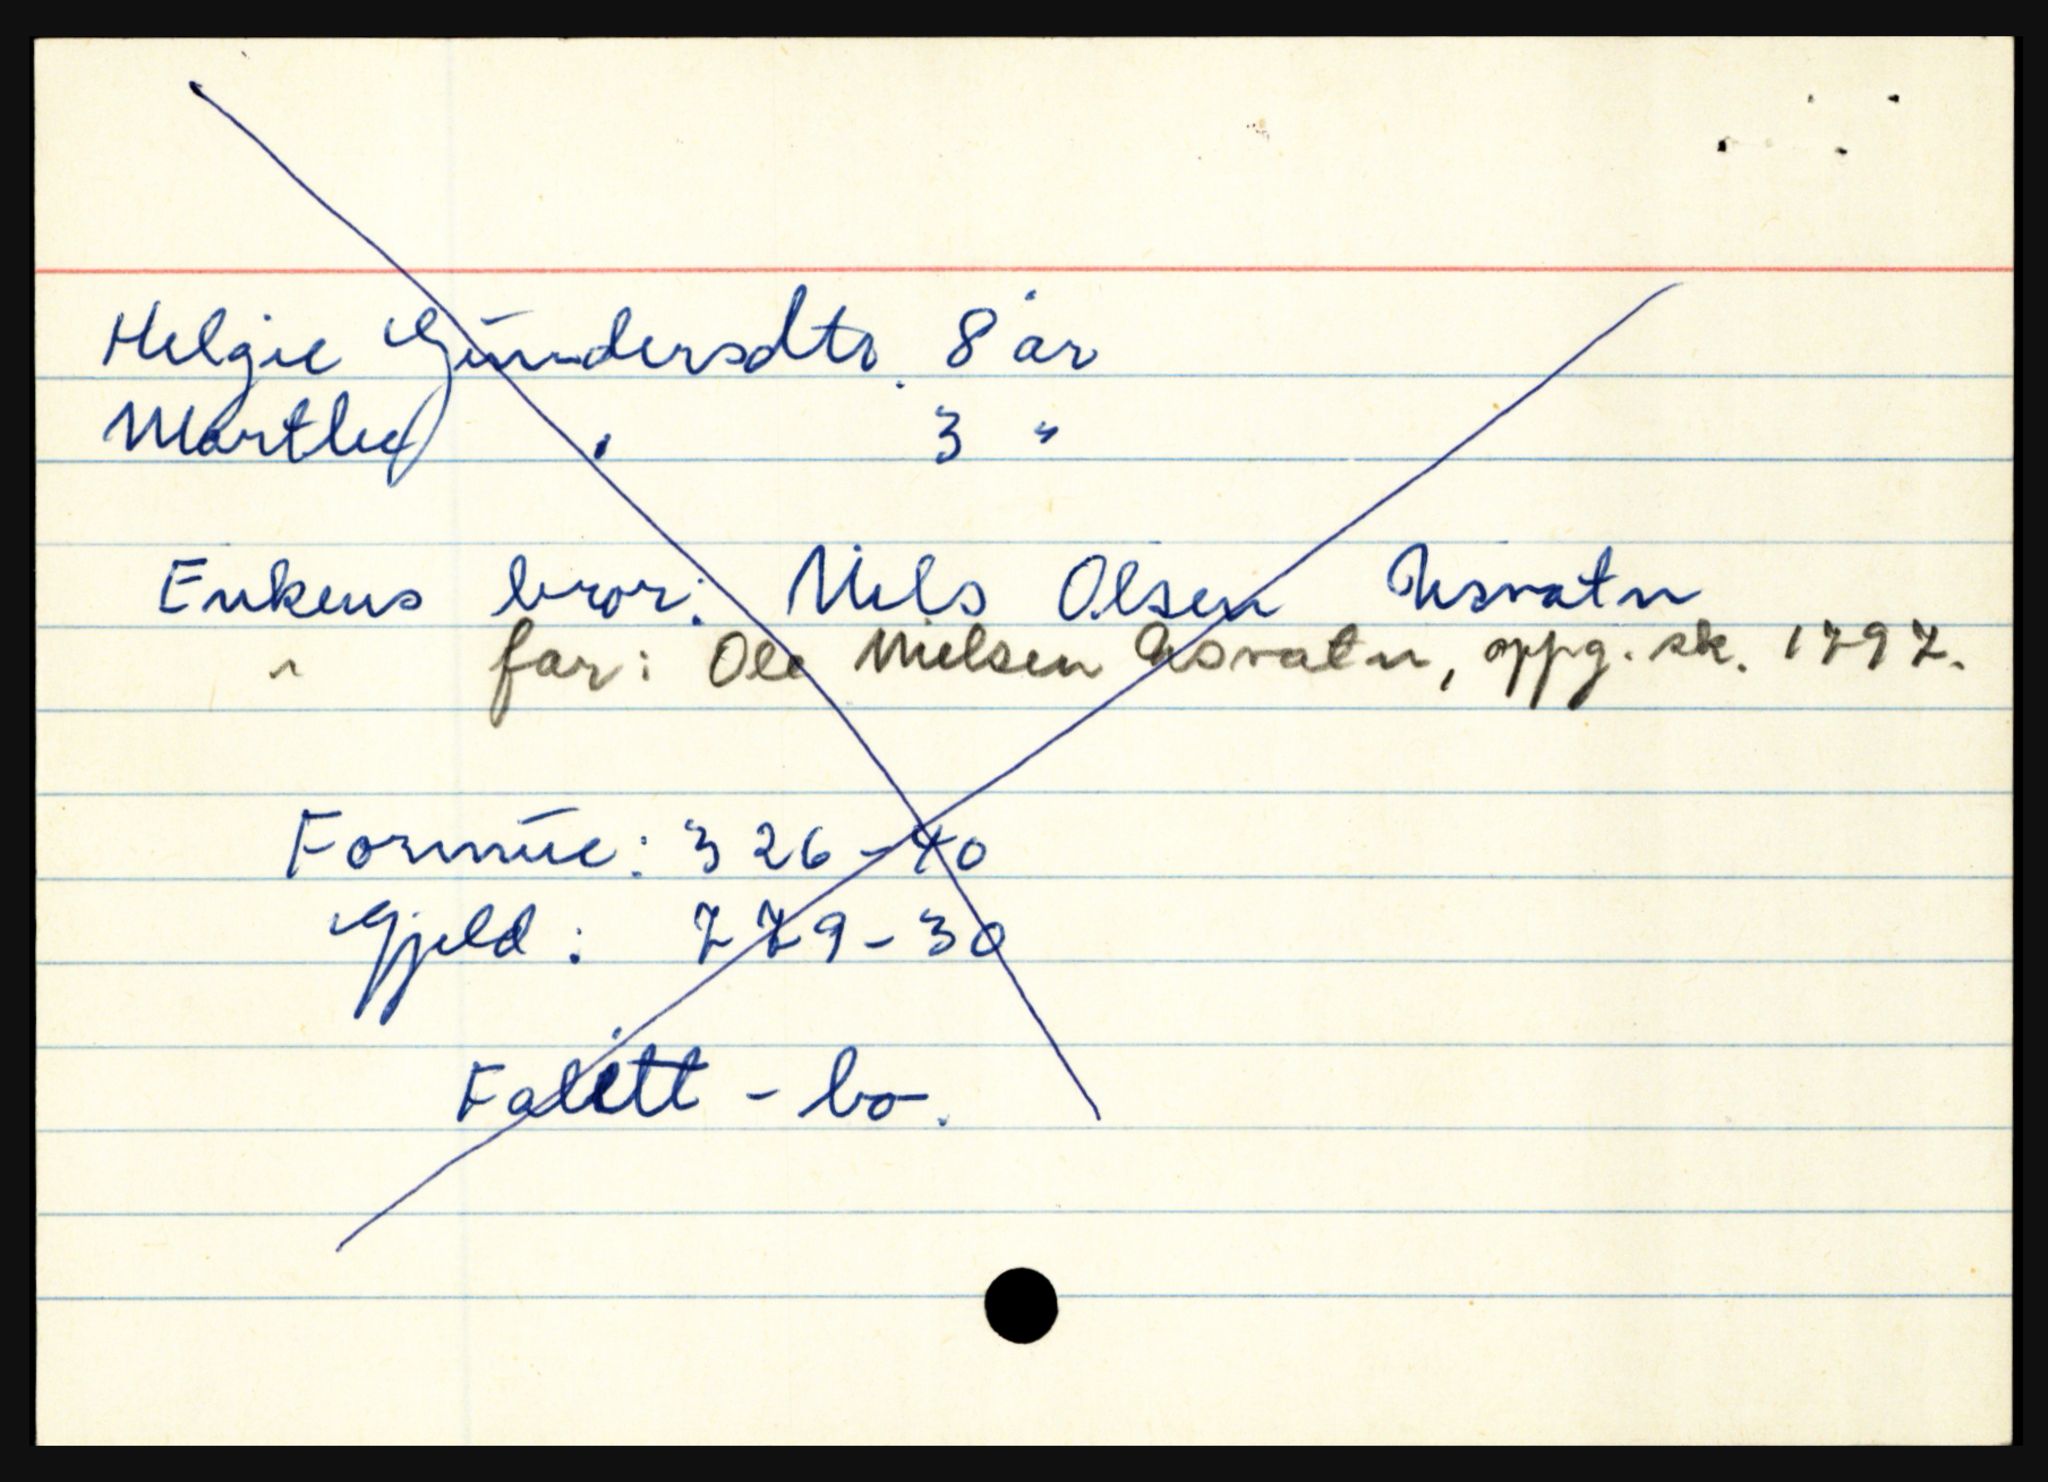 Helgie Gundersdtr. 8 år
Marthe " 3 "
Enkens bror: Nils Olsen Usvatn
" far: Ole Nielsen Usvatn, oppg. sk. 1797.
Formue: 326-40
Gjeld: 779-30
Falitt - bo.